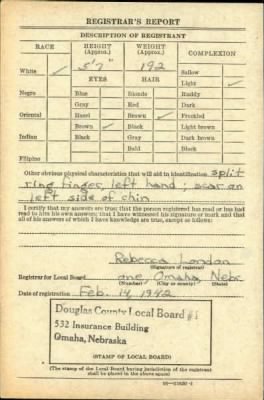 REGISTRAR'S REPORT
DESCRIPTION OF REGISTRANT
RACE HEIGHT (Approx.) WEIGHT (Approx.) COMPLEXION
5' 7" 192
White ✓ Sallow
EYES HAIR Light ✓
Negro Blue Blonde Ruddy
Gray Red Dark
Oriental Hazel Brown ✓ Freckled
Brown ✓ Black Light brown
Indian Black Gray Dark brown
Bald Black
Filipino
Other obvious physical characteristics that will aid in identification split
ring finger, left hand; scar on
left side of chin
I certify that my answers are true; that the person registered has read or has had
read to him his own answers; that I have witnessed his signature or mark and that
all of his answers of which I have knowledge are true, except as follows:
Rebecca London
(Signature of registrar)
Registrar for Local Board one Omaha, Nebr.
(Number) (City or county) (State)
Date of registration Feb. 14, 1942
Douglas County Local Board #1
532 Insurance Building
Omaha, Nebraska
(STAMP OF LOCAL BOARD)
(The stamp of the Local Board having jurisdiction of the registrant
shall be placed in the above space)